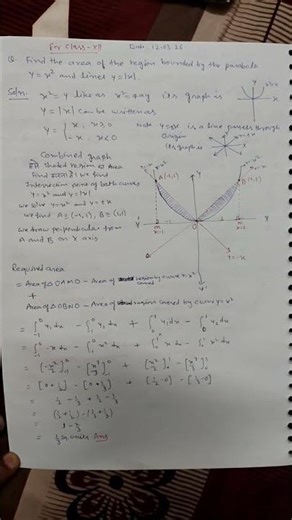 For class-XII
Date: 12.03.25
Q. Find the area of the region bounded by the parabola
y = x² and lines y = |x|.
Soln. x² = y like as x² = 4ay its graph is
y = |x| can be written as
y = { x, x ≥ 0
-x, x < 0
Now y = x is a line passes through
Origin
its graph is
Combined graph
Area
find we find
Intersection point of both curves
y = x² and y = |x|
we solve y = x² and y = ± x
we find A ≡ (-1,1), B ≡ (1,1)
we draw perpendicular from
A and B on x axis
A(-1,1)
B(1,1)
y = -x
Required area
= Area of △OAMO - Area of region by curve y = x²
+
Area of △OBNO - Area of region covered by curve y = x²
= ∫₋₁⁰ y₁dx - ∫₋₁⁰ y₂dx + ∫₀¹ y₁dx - ∫₀¹ y₂dx
= ∫₋₁⁰ -x dx - ∫₋₁⁰ x² dx + ∫₀¹ x dx - ∫₀¹ x² dx
= [-x²/2]₋₁⁰ - [x³/3]₋₁⁰ + [x²/2]₀¹ - [x³/3]₀¹
= [0 + 1/2] - [0 + 1/3] + [1/2 - 0] - [1/3 - 0]
= 1/2 - 1/3 + 1/2 - 1/3
= (1/2 + 1/2) - (1/3 + 1/3)
= 1 - 2/3
= 1/3 sq units Ans